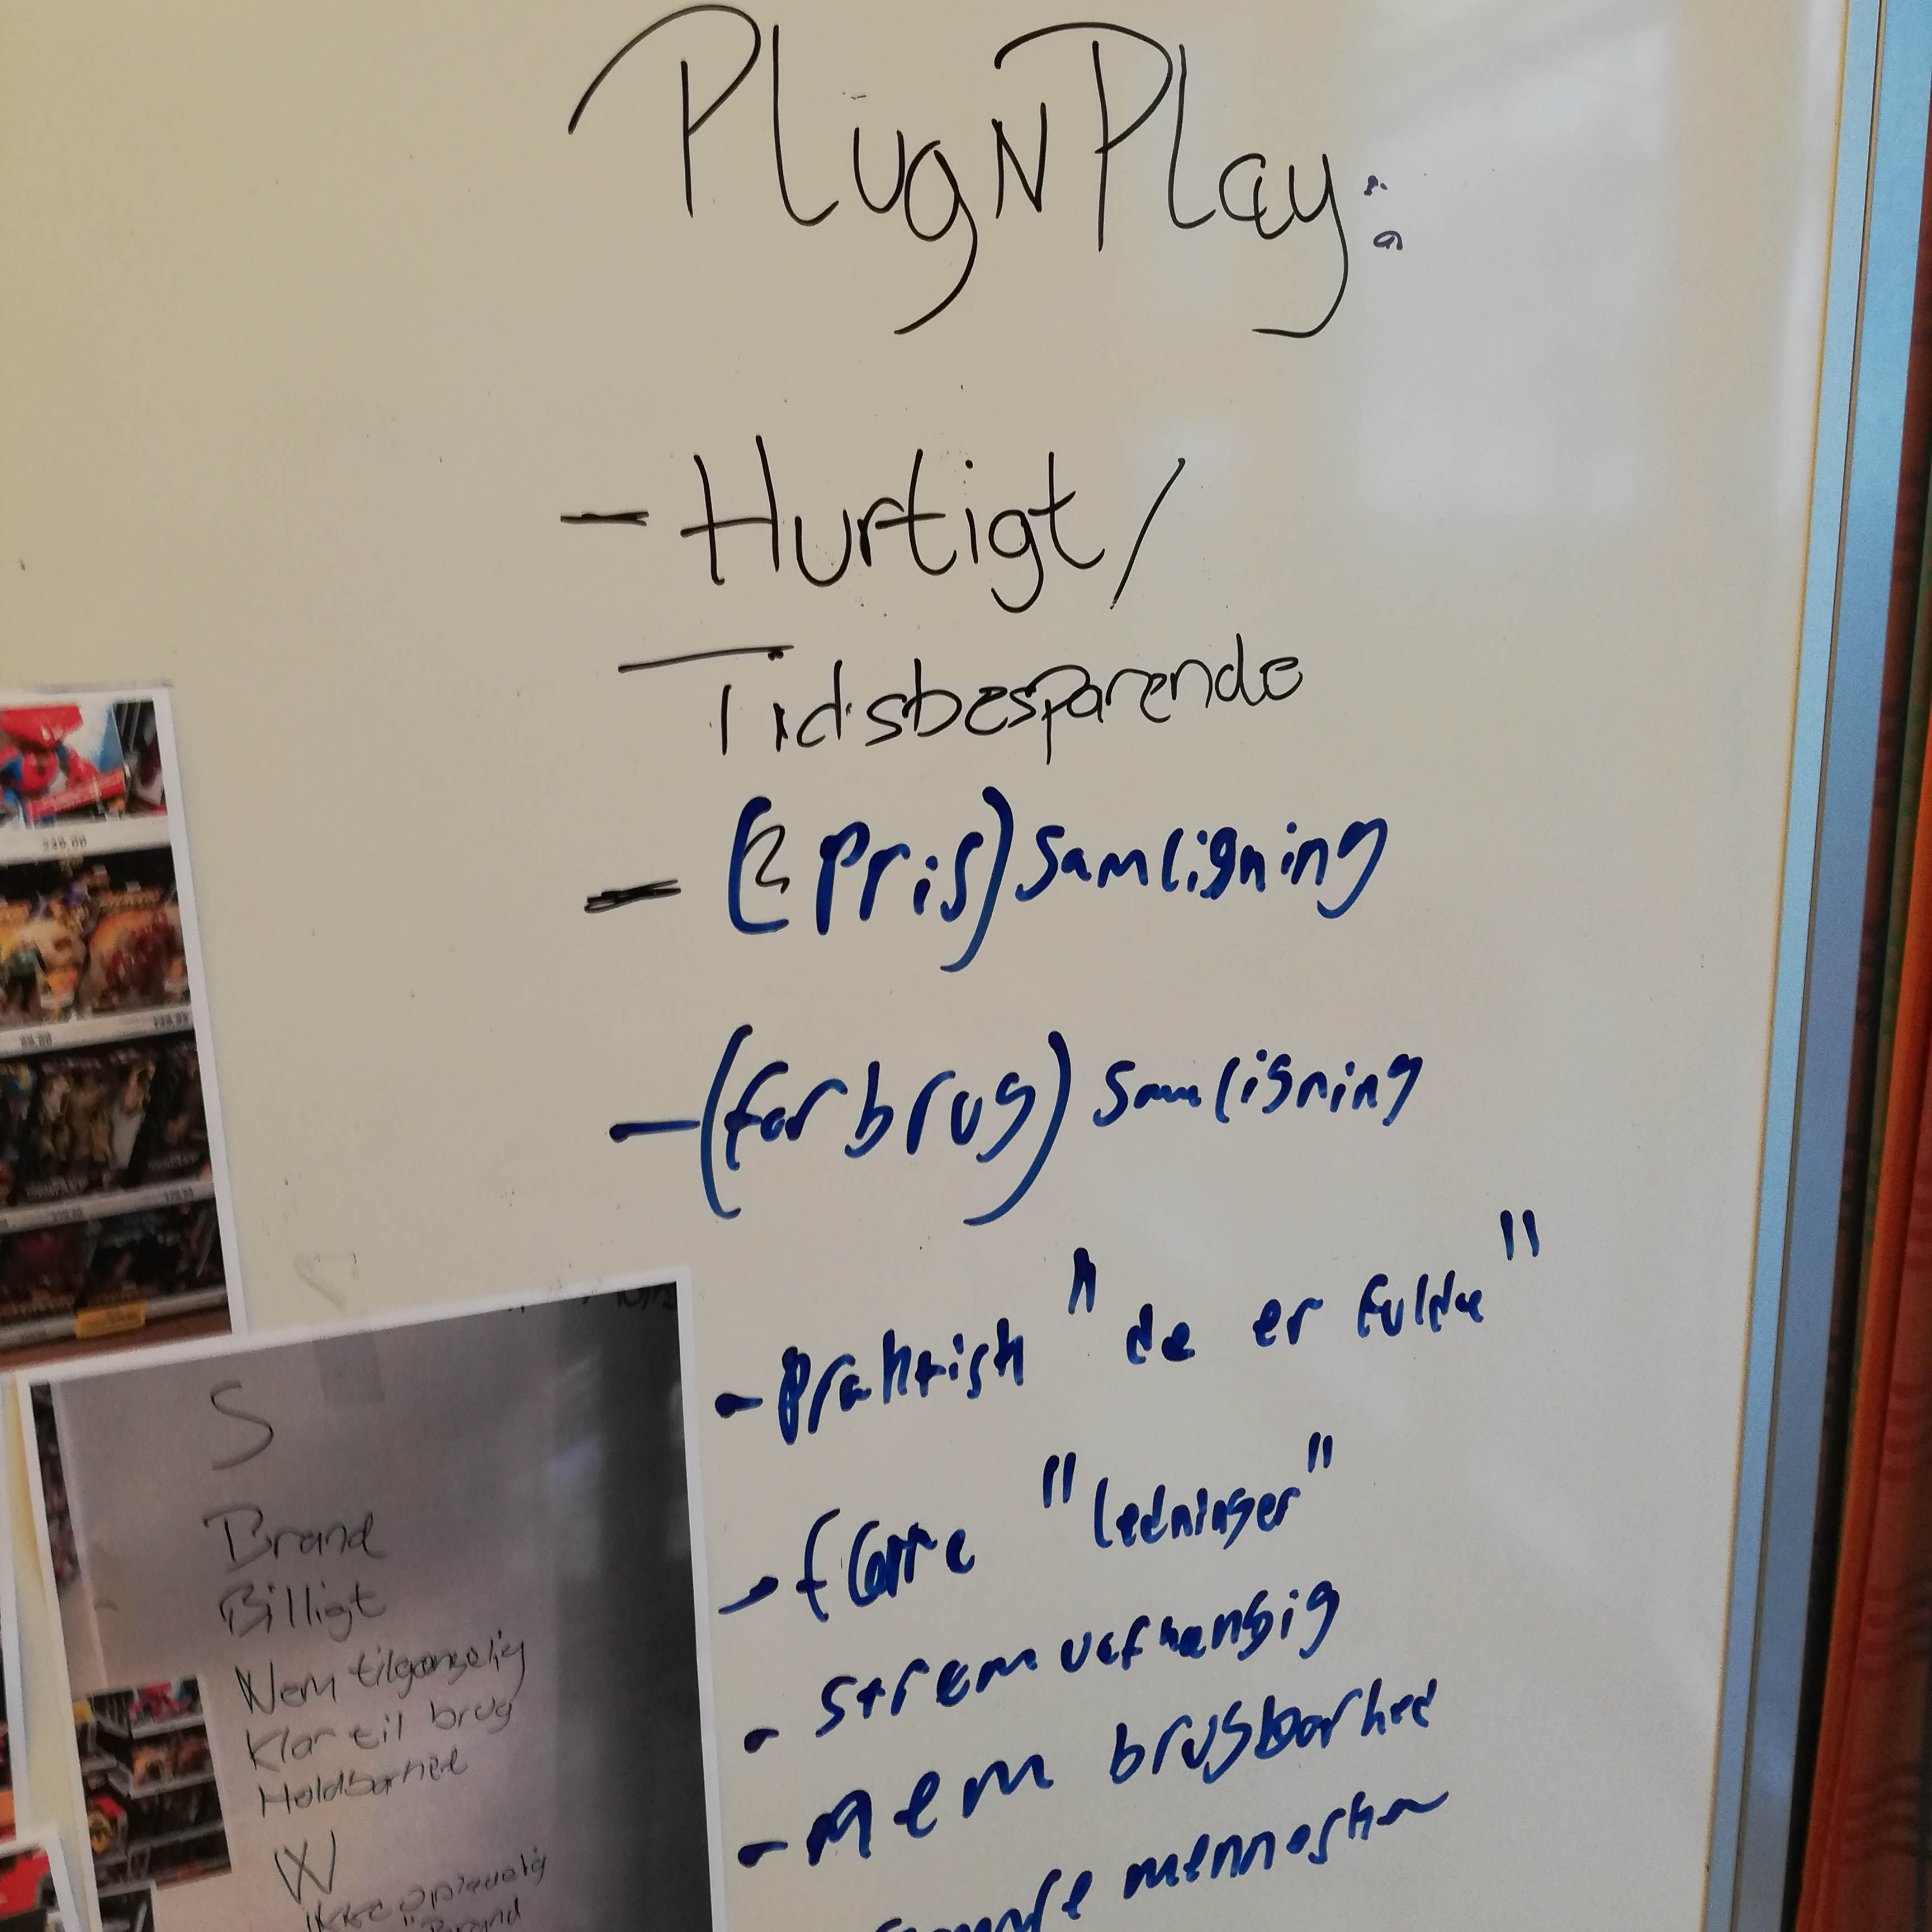 PlugNPlay:
- Hurtigt/
Tidsbesparende
- (Pris) Samligning
- (forbrug) Samligning
- Praktisk "de er fulde"
- flotte "ledninger"
- strøm uafhængig
- nem brugbarhed
mennesker
S
Brand
Billigt
Nem tilgængelig
Klar til brug
Holdbarhed
W
ikke
"Brand